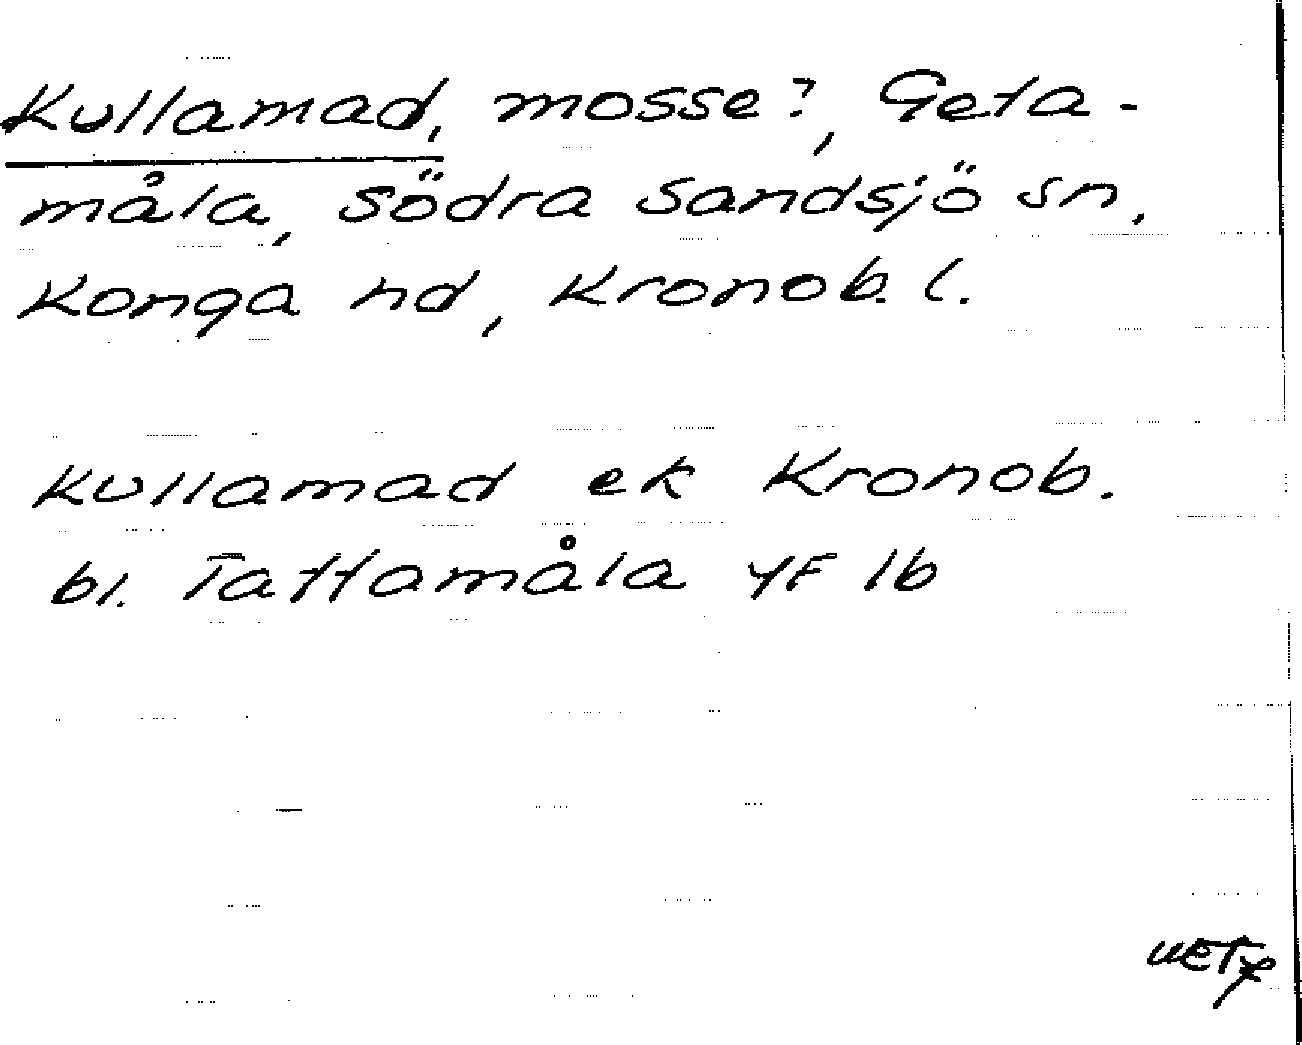 Kullamad, mosse?, Geta-
måla, Södra Sandsjö sn,
Konga hd, Kronob. l.
Kullamad ek Kronob.
bl. Tattamåla YF 1b